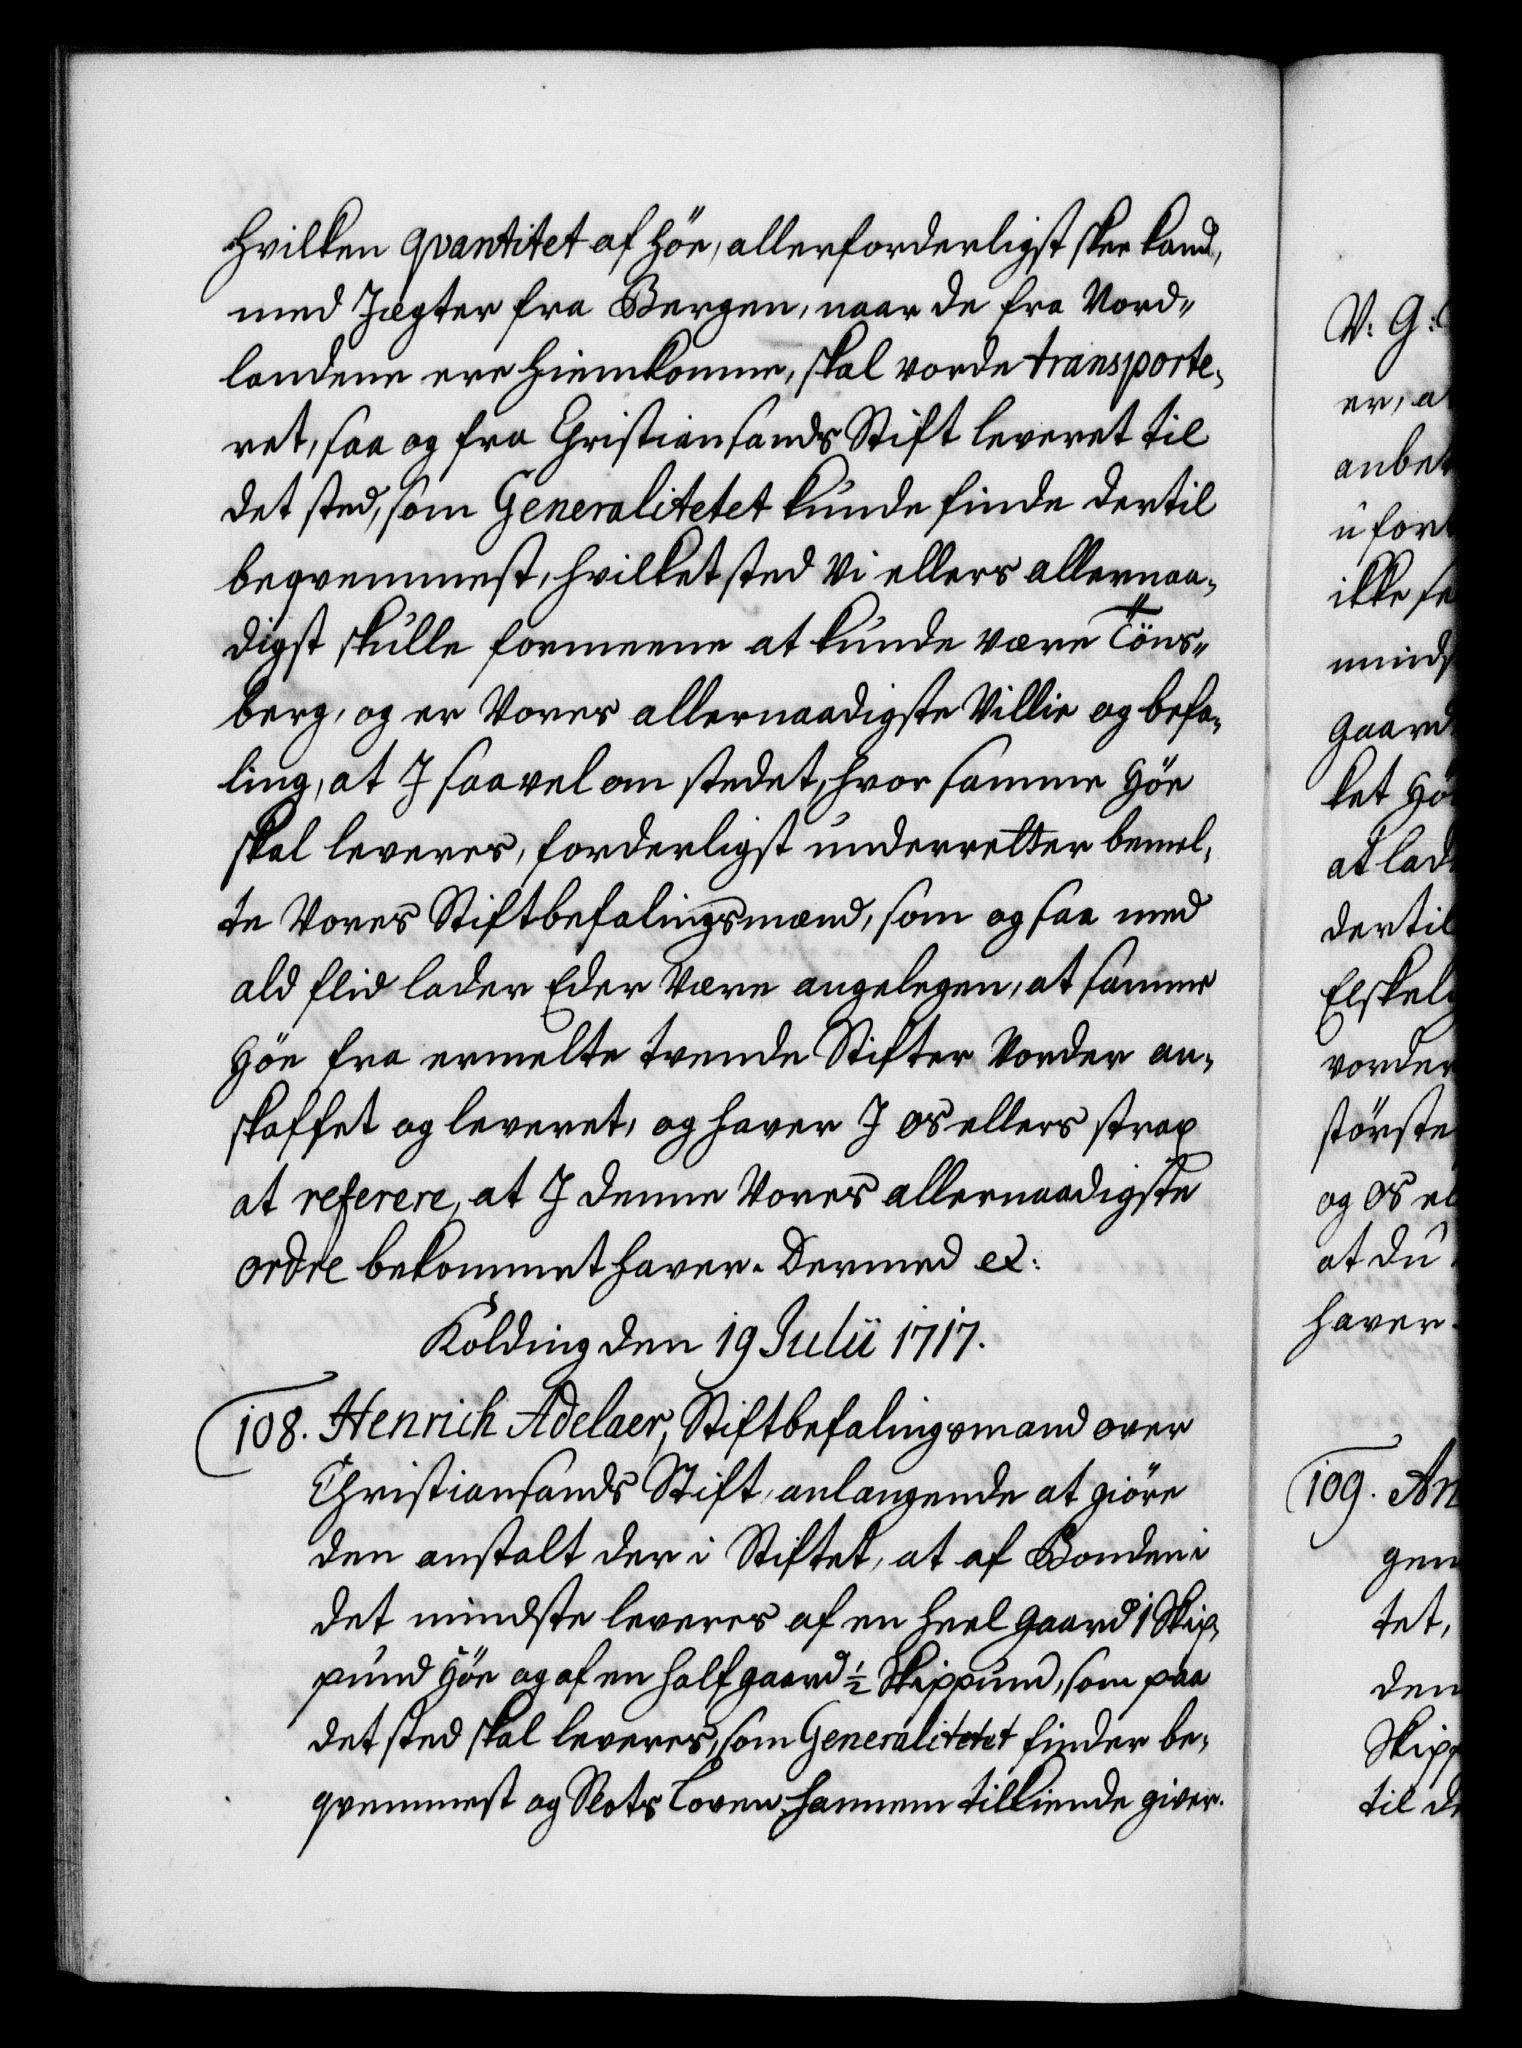 hvilken qvantitet af Höe, allerforderligst skee kand,
med Jægter fra Bergen, naar de fra Nord„
landene ere hiemkomne, skal vorde transporte„
ret, saa og fra Christiansands Stift leveret til
det sted, som Generalitetet kunde finde dertil
beqvemmest, hvilket sted Vi ellers allernaa„
digst skulle formeene at kunde være Töns„
berg, og er Vores allernaadigste Villie og befa„
ling, at I saavel om stedet, hvor samme Höe
skal leveres, forderligst underretter bemel„
te Vores Stiftbefalingsmænd, som og saa med
ald flid lader Eder være angelegen, at samme
Höe fra ermelte tvende Stifter vorder an„
skaffet og leveret, og haver I os ellers strax
at referere, at I denne Vores allernaadigste
ordre bekommet haver. Dermed ex:
Kolding den 19 Julii 1717.
108. Henrich Adelaer, Stiftbefalingsmand over
Christiansands Stift, anlangende at giöre
den anstalt der i Stiftet, at af Bonden i
det mindste leveres af en heel gaard 1 Skip„
pund Höe og af en half gaard ½ Skippund, som paa
det sted skal leveres, som Generalitetet finder be„
qvemmest og Slots Loven hannem tilkiende giver.
V: G:
er, a
anbet
u for
ikke
minds
gaard
ket Hö
at lad
dertil
Elskel
vorder
störste
og os el
at du
haver
109. An
gen
tet,
den
Skipp
til de